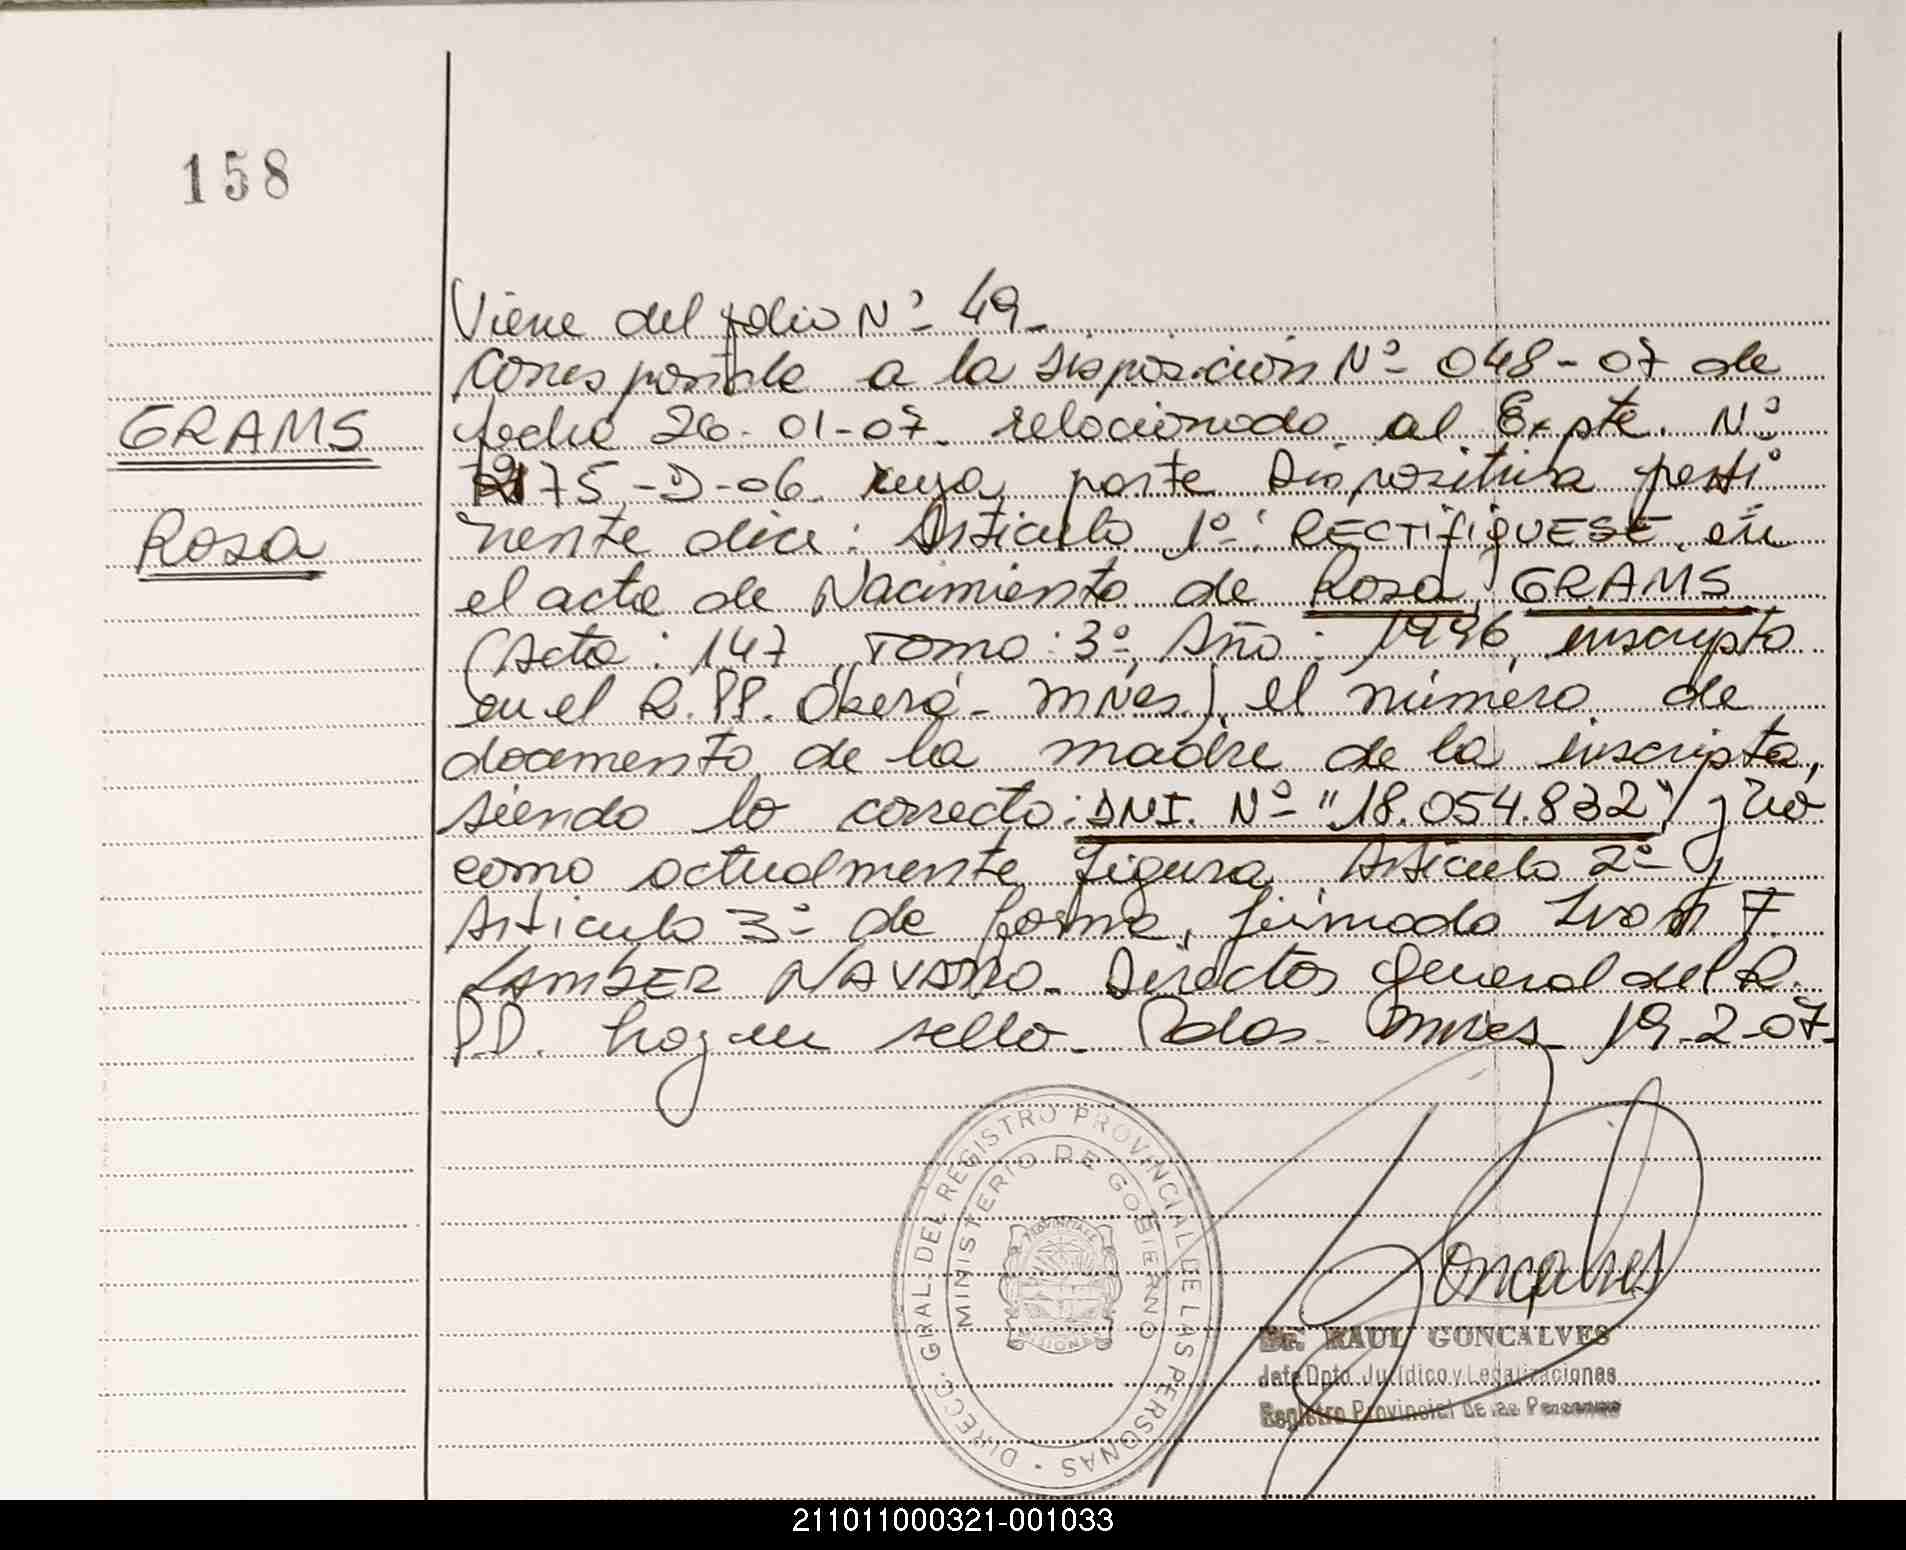 158
GRAMS
Rosa
Viene del folio Nº 49.
Corresponde a la Disposición Nº 048-07 de
fecha 26-01-07. relacionado al Expte. Nº
2175-D-06. cuya parte Dispositiva perti
nente dice: Artículo 1º: RECTIFIQUESE, en
el acta de Nacimiento de Rosa GRAMS
(Acta: 147, Tomo: 3º, Año: 1996, inscripta
en el R.PP. Oberá - Mnes.) el número de
documento de la madre de la inscripta,
siendo lo correcto: DNI. Nº "18.054.832", y no
como actualmente figura, Artículo 2º y
Artículo 3º de forma, firmado F.
NAVARRO. Director General del R.
P.P. hay un sello. Pdas. Mnes. 19-2-07.
DIRECC. GRAL. DEL REGISTRO PROVINCIAL DE LAS PERSONAS
MINISTERIO DE GOBIERNO
Goncalves
Dr. RAUL GONCALVES
Jefe Dpto. Jurídico y Legalizaciones
Registro Provincial de las Personas
211011000321-001033